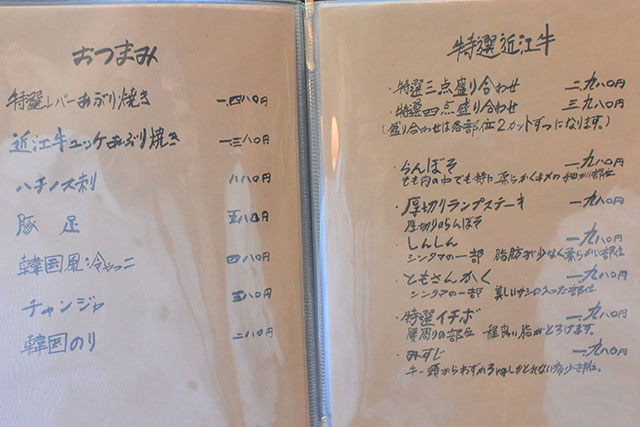 おつまみ
特選レバーあぶり焼き 一、四八〇円
近江牛ユッケあぶり焼き 一、三八〇円
ハチノス刺 八八〇円
豚足 五八〇円
韓国風冷やっこ 四八〇円
チャンジャ 五八〇円
韓国のり 二八〇円
特選近江牛
・特選三点盛り合わせ 二、九八〇円
・特選四点盛り合わせ 三、九八〇円
(盛り合わせは各部位2カットずつになります。)
・らんぼそ 一、九八〇円
もも肉の中でも特に柔らかくキメの細かい部位
・厚切りランプステーキ 一、九八〇円
厚切りのらんぼそ
・しんしん 一、九八〇円
シンタマの一部 脂肪が少なく柔らかい部位
・ともさんかく 一、九八〇円
シンタマの一部 美しいサシの入った部位
・特選イチボ 一、九八〇円
腰周りの部位 程良い脂がとろけます。
・みすじ 一、九八〇円
牛一頭からわずかしかとれない希少部位。